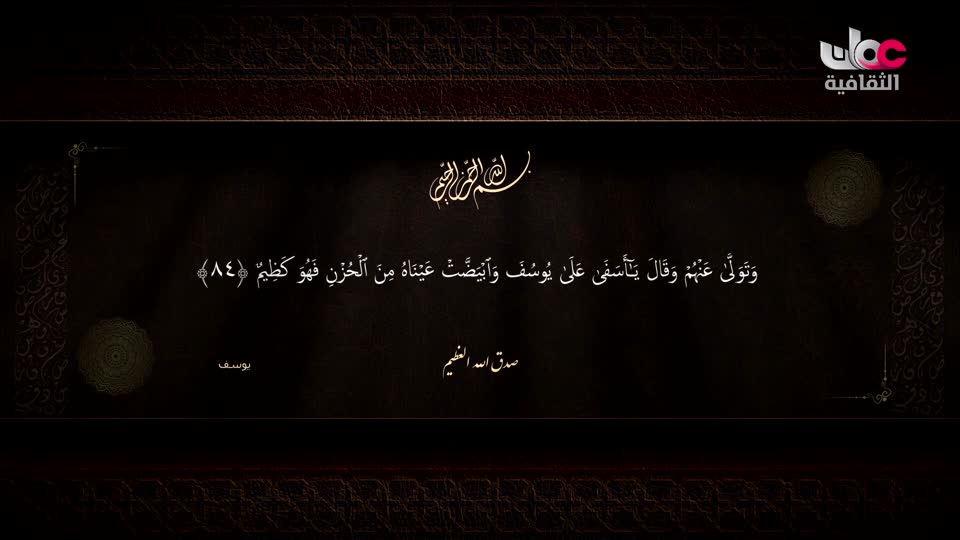 عمان
الثقافية
بسم الله الرحمن الرحيم
وَتَوَلَّىٰ عَنْهُمْ وَقَالَ يَـٰٓأَسَفَىٰ عَلَىٰ يُوسُفَ وَٱبْيَضَّتْ عَيْنَاهُ مِنَ ٱلْحُزْنِ فَهُوَ كَظِيمٌ ﴿٨٤﴾
صدق الله العظيم
يوسف